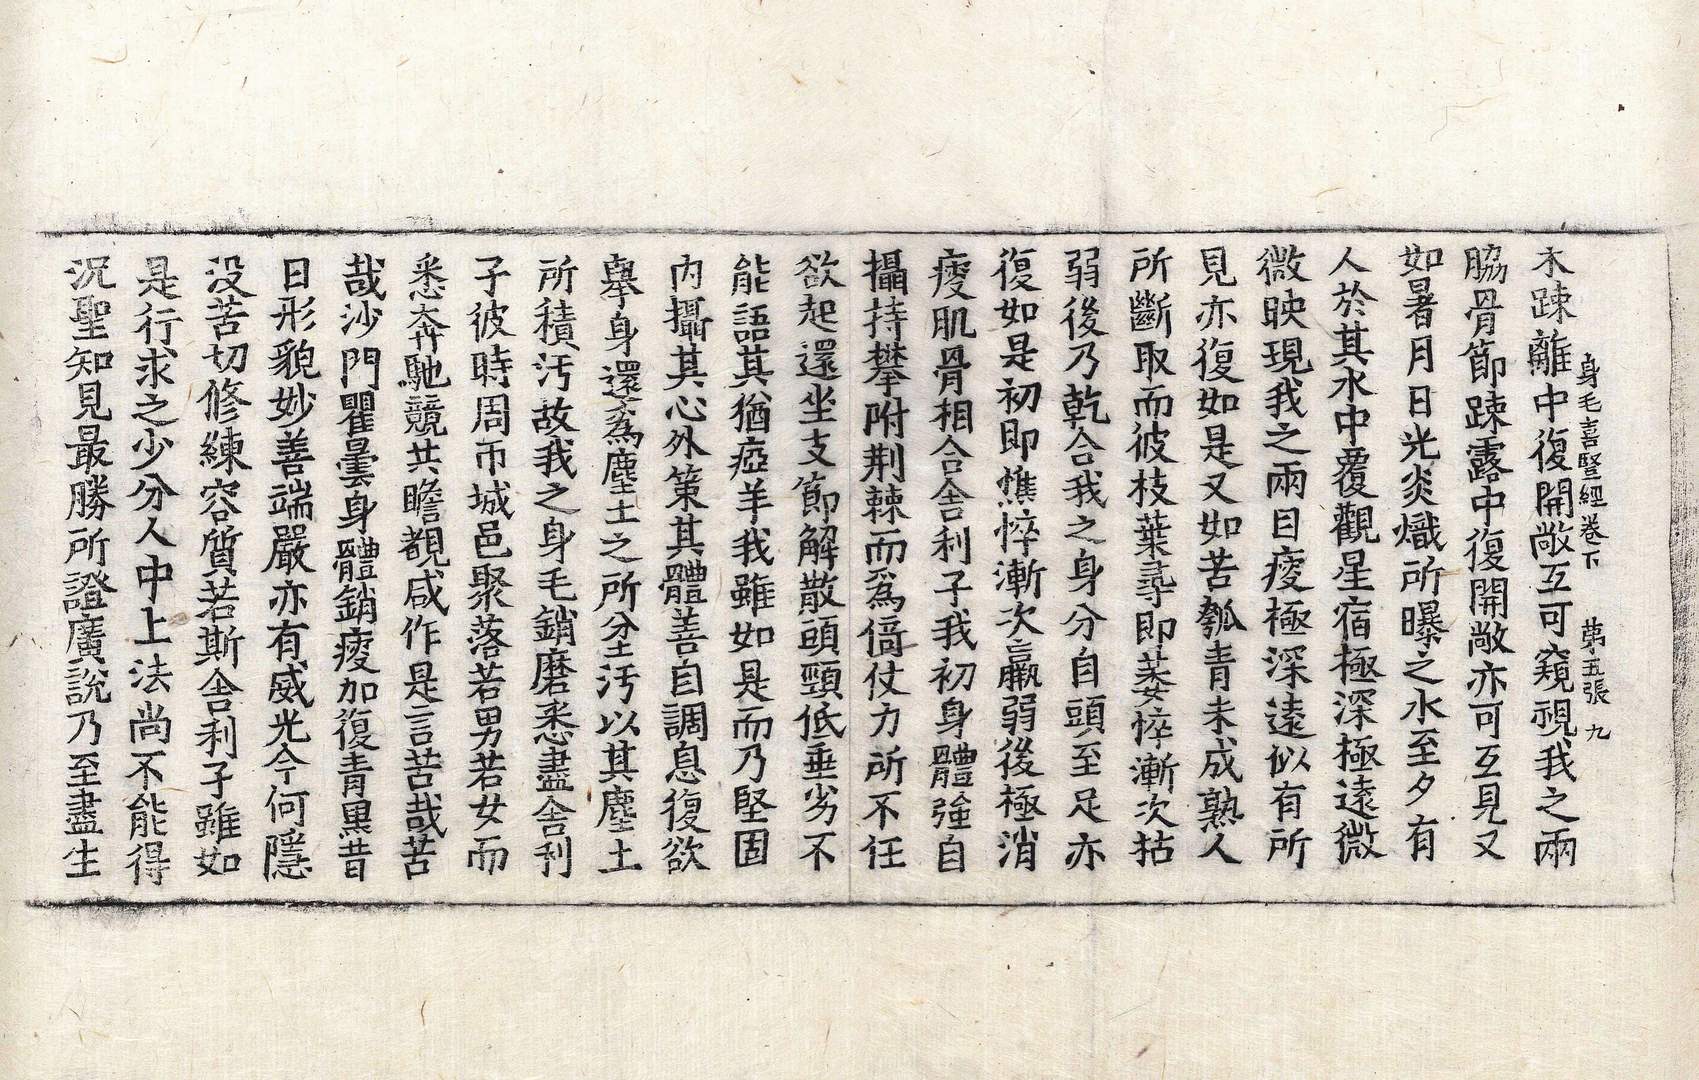 身毛喜竪經卷下 第五張 九
木踈離中復開敞互可窺視我之兩
脇骨節踈露中復開敞亦可互見又
如暑月日光炎熾所曝之水至夕有
人於其水中覆觀星宿極深極遠微
微映現我之兩目瘦極深遠似有所
見亦復如是又如苦瓠青未成熟人
所斷取而彼枝葉尋即萎悴漸次枯
弱後乃乾合我之身分自頭至足亦
復如是初即憔悴漸次羸弱後極消
瘦肌骨相合舍利子我初身體強自
攝持攀附荆棘而爲倚仗力所不任
欲起還坐支節解散頭頸低垂劣不
能語其猶瘂羊我雖如是而乃堅固
內攝其心外策其體善自調息復欲
舉身還爲塵土之所坌汚以其塵土
所積汚故我之身毛銷磨悉盡舍利
子彼時周帀城邑聚落若男若女而
悉奔馳競共瞻覩咸作是言苦哉苦
哉沙門瞿曇身體銷瘦加復青黑昔
日形貌妙善端嚴亦有威光今何隱
没苦切修練容質若斯舍利子雖如
是行求之少分人中上法尚不能得
況聖知見最勝所證廣說乃至盡生